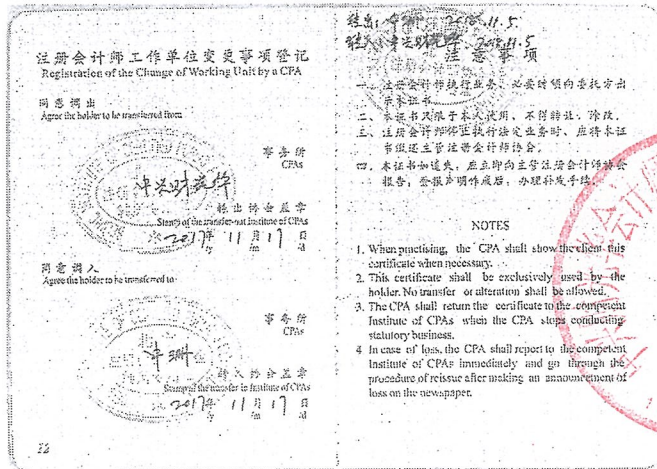 注册会计师工作单位变更事项登记
Registration of the Change of Working Unit by a CPA
同意调出
Agree the holder to be transferred from
事务所
CPAs
中兴财光华
转出协会盖章
Stamp of the transfer-out Institute of CPAs
2017年 11月17日
/y /m /d
同意调入
Agree the holder to be transferred to
事务所
CPAs
转入协会盖章
Stamp of the transfer-in Institute of CPAs
2017年 11月17日
/y /m /d
12
转出: 2018.11.5.
转入: 中兴财光华 2018.11.5
注意事项
一、注册会计师执行业务,必要时须向委托方出
示本证书。
二、本证书只限于本人使用,不得转让、涂改。
三、注册会计师停止执行法定业务时,应将本证
书缴还主管注册会计师协会。
四、本证书如遗失,应立即向主管注册会计师协会
报告,登报声明作废后,办理补发手续。
NOTES
1. When practising, the CPA shall show the client this
certificate when necessary.
2. This certificate shall be exclusively used by the
holder. No transfer or alteration shall be allowed.
3. The CPA shall return the certificate to the competent
Institute of CPAs when the CPA stops conducting
statutory business.
4 In case of loss, the CPA shall report to the competent
Institute of CPAs immediately and go through the
procedure of reissue after making an announcement of
loss on the newspaper.